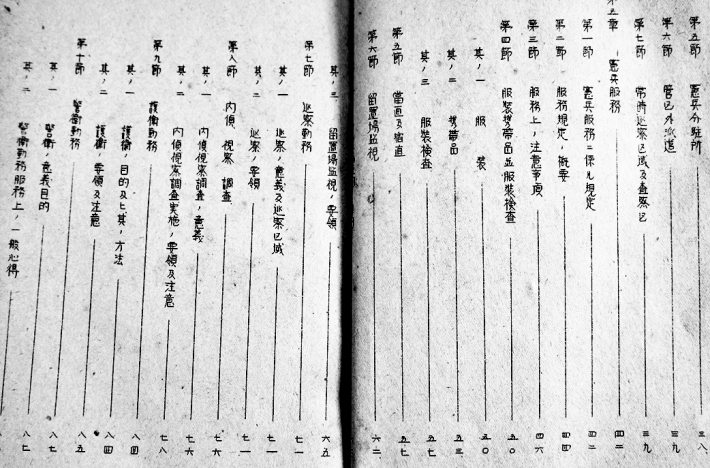 第五節 憲兵分駐所 三八
第六節 管区外派遣 三九
第七節 常時巡察区域及査察区 三九
第五章 憲兵服務 四二
第一節 憲兵服務ニ係ル規定 四二
第二節 服務規定ノ概要 四四
第三節 服務上ノ注意事項 四六
第四節 服装携帯品並服装検査 五〇
其ノ一 服装 五〇
其ノ二 携帯品 五三
其ノ三 服装検査 五七
第五節 当直及宿直 五七
第六節 留置場監視 六二
其ノ三 留置場監視ノ要領 六五
第七節 巡察勤務 七一
其ノ一 巡察ノ意義及巡察区域 七一
其ノ二 巡察ノ要領 七一
第八節 内偵 視察 調査 七六
其ノ一 内偵視察調査ノ意義 七六
其ノ二 内偵視察調査実施ノ要領及注意 七八
第九節 護衛勤務 八四
其ノ一 護衛ノ目的及ヒ其ノ方法 八四
其ノ二 護衛ノ要領及注意 八四
第十節 警衛勤務 八五
其ノ一 警衛ノ意義目的 八七
其ノ二 警衛勤務服務上ノ一般心得 八七